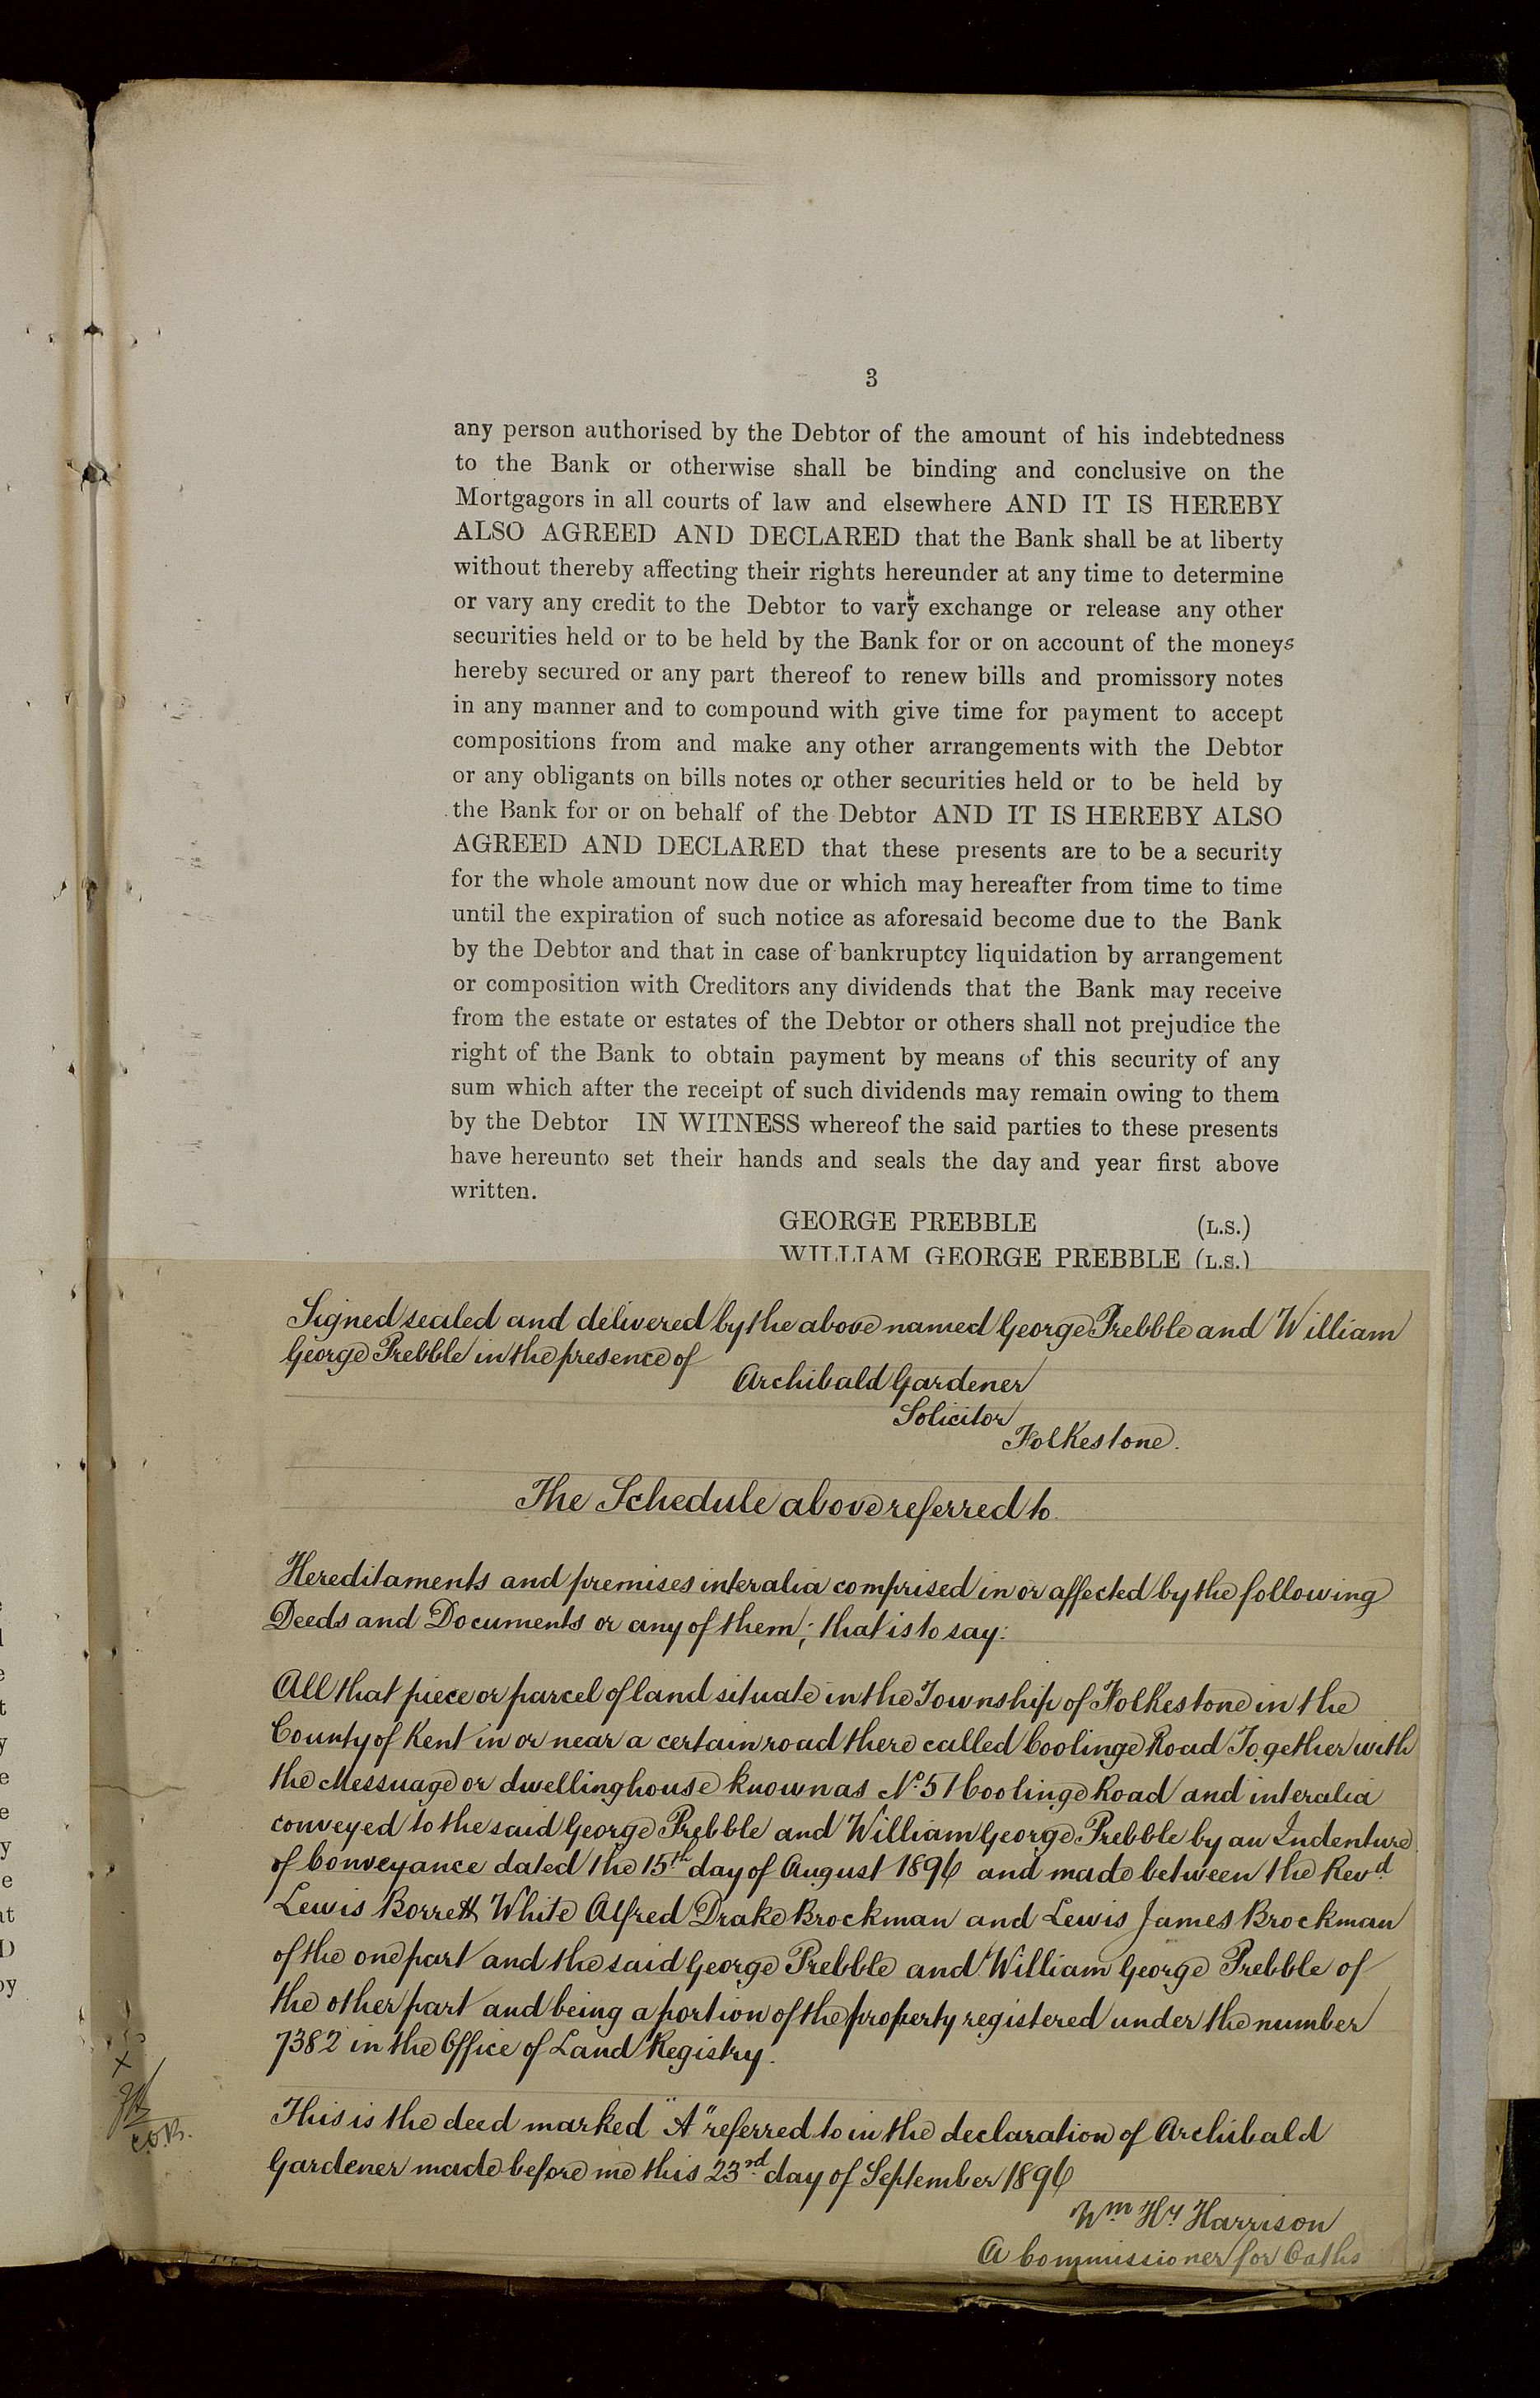 3
any person authorised by the Debtor of the amount of his indebtedness
to the Bank or otherwise shall be binding and conclusive on the
Mortgagors in all courts of law and elsewhere AND IT IS HEREBY
ALSO AGREED AND DECLARED that the Bank shall be at liberty
without thereby affecting their rights hereunder at any time to determine
or vary any credit to the Debtor to vary exchange or release any other
securities held or to be held by the Bank for or on account of the moneys
hereby secured or any part thereof to renew bills and promissory notes
in any manner and to compound with give time for payment to accept
compositions from and make any other arrangements with the Debtor
or any obligants on bills notes or other securities held or to be held by
the Bank for or on behalf of the Debtor AND IT IS HEREBY ALSO
AGREED AND DECLARED that these presents are to be a security
for the whole amount now due or which may hereafter from time to time
until the expiration of such notice as aforesaid become due to the Bank
by the Debtor and that in case of bankruptcy liquidation by arrangement
or composition with Creditors any dividends that the Bank may receive
from the estate or estates of the Debtor or others shall not prejudice the
right of the Bank to obtain payment by means of this security of any
sum which after the receipt of such dividends may remain owing to them
by the Debtor IN WITNESS whereof the said parties to these presents
have hereunto set their hands and seals the day and year first above
written.
GEORGE PREBBLE (L.S.)
WILLIAM GEORGE PREBBLE (L.S.)
Signed sealed and delivered by the above named George Prebble and William
George Prebble in the presence of
Archibald Gardener
Solicitor
Folkestone.
The Schedule above referred to
Hereditaments and premises interalia comprised in or affected by the following
Deeds and Documents or any of them; that is to say:
All that piece or parcel of land situate in the Township of Folkestone in the
County of Kent in or near a certain road there called Coolinge Road Together with
the Messuage or dwellinghouse known as No. 51 Coolinge Road and interalia
conveyed to the said George Prebble and William George Prebble by an Indenture
of Conveyance dated the 15th day of August 1896 and made between the Revd.
Lewis Borrett White Alfred Drake Brockman and Lewis James Brockman
of the one part and the said George Prebble and William George Prebble of
the other part and being a portion of the property registered under the number
7382 in the Office of Land Registry.
This is the deed marked "A" referred to in the declaration of Archibald
Gardener made before me this 23rd day of September 1896
Wm. Hy. Harrison
A Commissioner for Oaths